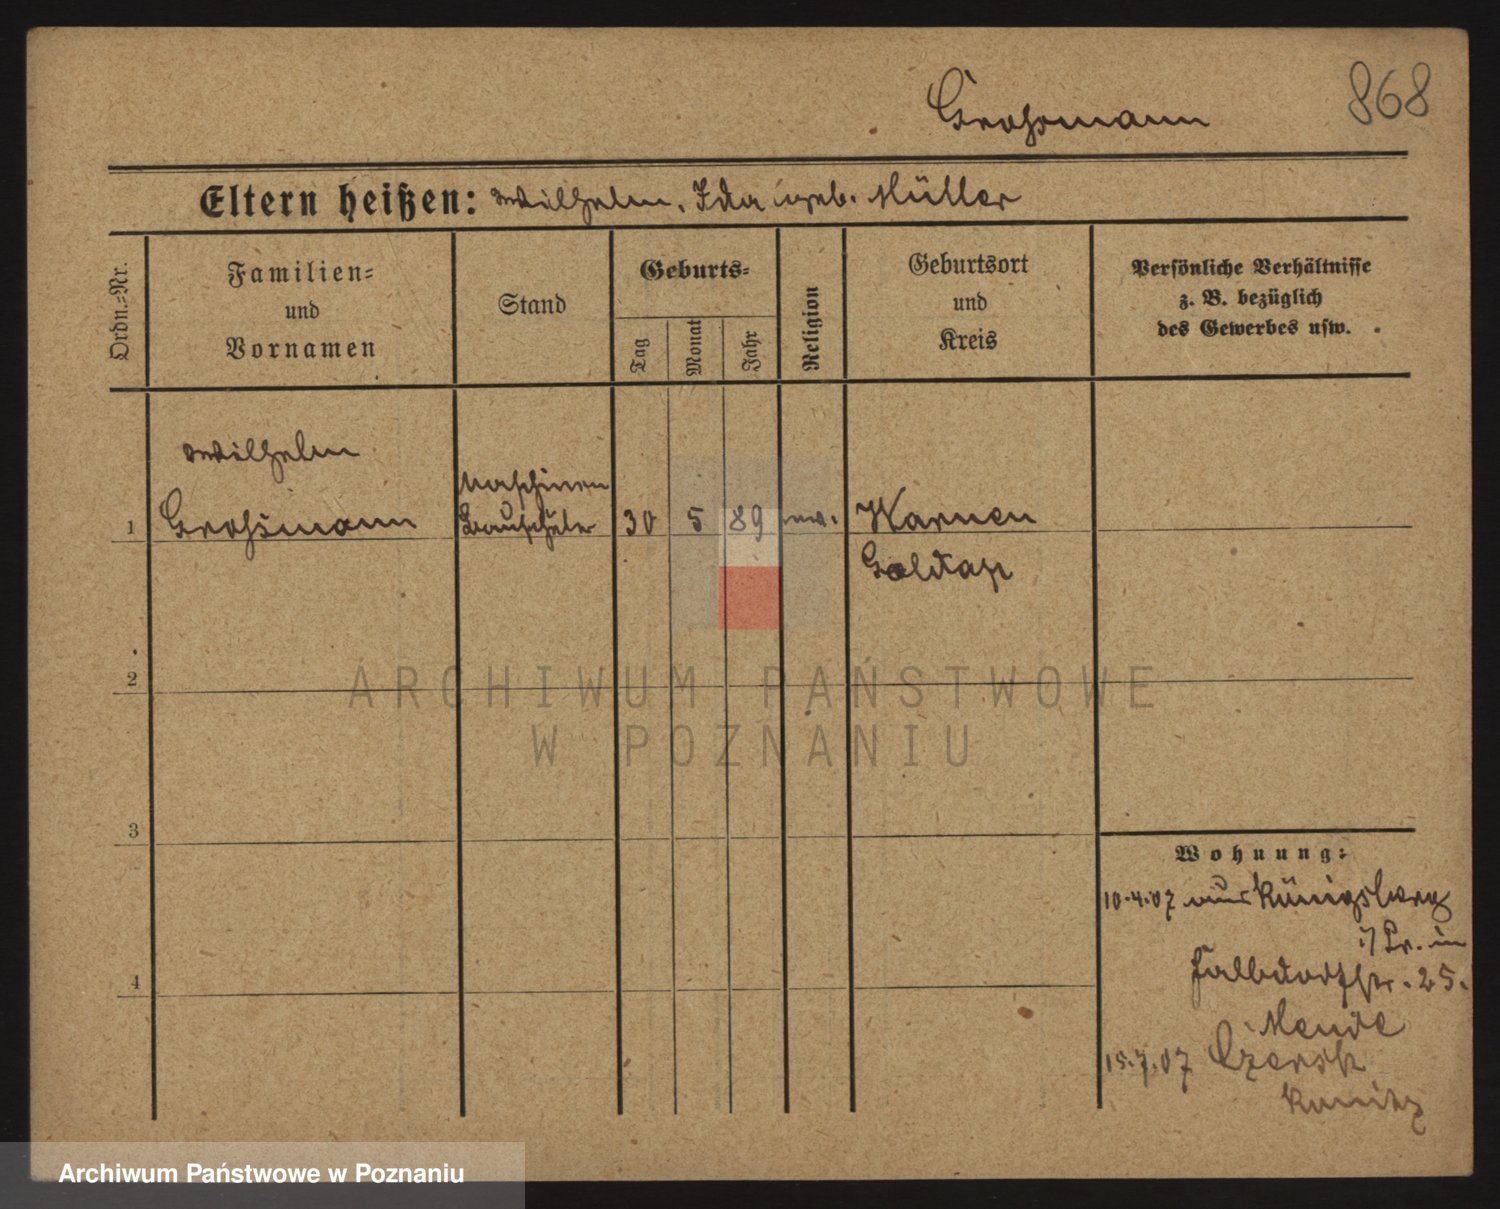 868
Grossmann
Eltern heißen: Wilhelm, Ida geb. Müller
Ordn.-Nr.
Familien-
und
Vornamen
Stand
Geburts-
Tag
Monat
Jahr
Religion
Geburtsort
und
Kreis
Persönliche Verhältnisse
z. B. bezüglich
des Gewerbes usw.
Wilhelm
Maschinen
1 Grossmann Bauschüler 30 5 89 ev. Warnen
Goldap
2
3
4
Wohnung:
10.4.07 aus Königsberg
i/Pr. in
str. 25.
Mende
15.7.07 Czersk
Konitz
ARCHIWUM PAŃSTWOWE
W POZNANIU
Archiwum Państwowe w Poznaniu